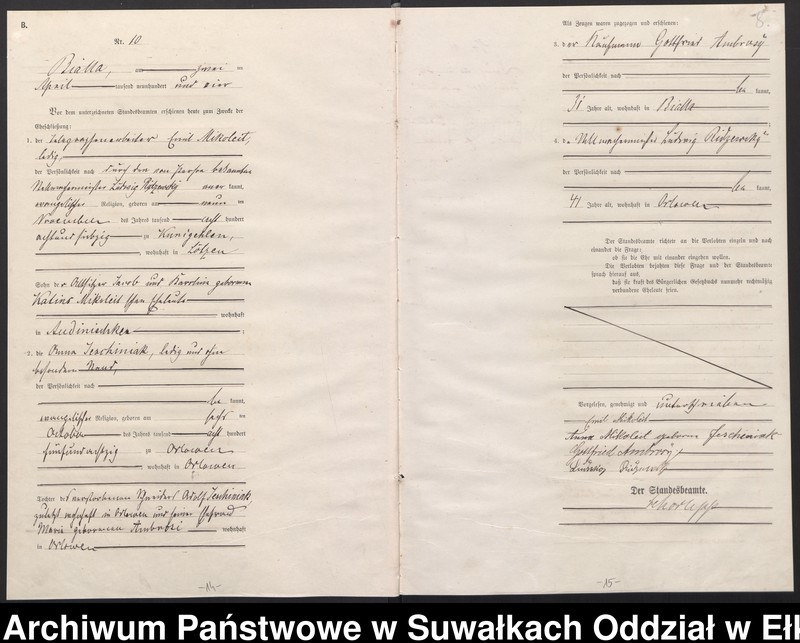 B.
Nr. 10
Bialla, am zwei ten
April tausend neunhundert und vier
Vor dem unterzeichneten Standesbeamten erschienen heute zum Zwecke der
Eheschließung:
1. der Telegraphenarbeiter Emil Mikoleit,
ledig,
der Persönlichkeit nach durch den von Person bekannten
Ludwig Ridzewsky aner kannt,
evangelischer Religion, geboren am neun ten
November des Jahres tausend acht hundert
achtundsiebzig zu
, wohnhaft in Lötzen
Sohn der Altsitzer Jacob und Karoline geborenen
Katins Mikoleit schen Eheleute
wohnhaft
in Audinischken
2. die Anna Jeschiniak, ledig und ohne
besonderen Stand,
der Persönlichkeit nach
be kannt,
evangelischer Religion, geboren am sechs ten
October des Jahres tausend acht hundert
fünfundachtzig zu Orlowen
, wohnhaft in Orlowen
Tochter des verstorbenen Schneiders Adolf Jeschiniak,
zuletzt wohnhaft in Orlowen und seiner Ehefrau
Marie geborenen Ambrosi wohnhaft
in Orlowen
-14-
8.
Als Zeugen waren zugezogen und erschienen:
3. der Kaufmann Gottfried Ambrosy
der Persönlichkeit nach
be kannt,
31 Jahre alt, wohnhaft in Bialla
4. der Ludwig Ridzewsky
der Persönlichkeit nach
be kannt,
41 Jahre alt, wohnhaft in Orlowen
Der Standesbeamte richtete an die Verlobten einzeln und nach
einander die Frage:
ob sie die Ehe mit einander eingehen wollen.
Die Verlobten bejahten diese Frage und der Standesbeamte
sprach hierauf aus,
daß sie kraft des Bürgerlichen Gesetzbuchs nunmehr rechtmäßig
verbundene Eheleute seien.
Vorgelesen, genehmigt und unterschrieben
Emil Mikoleit
Anna Mikoleit geborene Jescheniak
Gottfried Ambrosy
Ludwig
Der Standesbeamte.
-15-
Archiwum Państwowe w Suwałkach Oddział w Eł